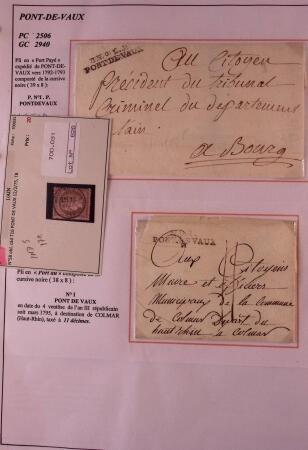 PONT-DE-VAUX
PC 2506
GC 2940
Pli en « Port Payé »
expédié de PONT-DE-
VAUX vers 1792-1793
composté de la cursive
noire ( 39 x 8 ) :
P. N°1. P.
PONTDEVAUX
PONTDEVAUX
Au Citoyen
Président du tribunal
Criminel du département
De l'ain
a Bourg
700.031
Lot N°
L'AIN
Prix : 20
Pli en « Port dû » composté de
cursive noire ( 38 x 8 ) :
N° 1
PONT DE VAUX
en date du 4 ventôse de l'an III républicain
soit mars 1795, à destination de COLMAR
(Haut-Rhin), taxé à 11 décimes.
PONTDEVAUX
Aux Citoyens
Maire et officiers
Municipaux de la Commune
de Colmar Depart. du
haut rhin a Colmar